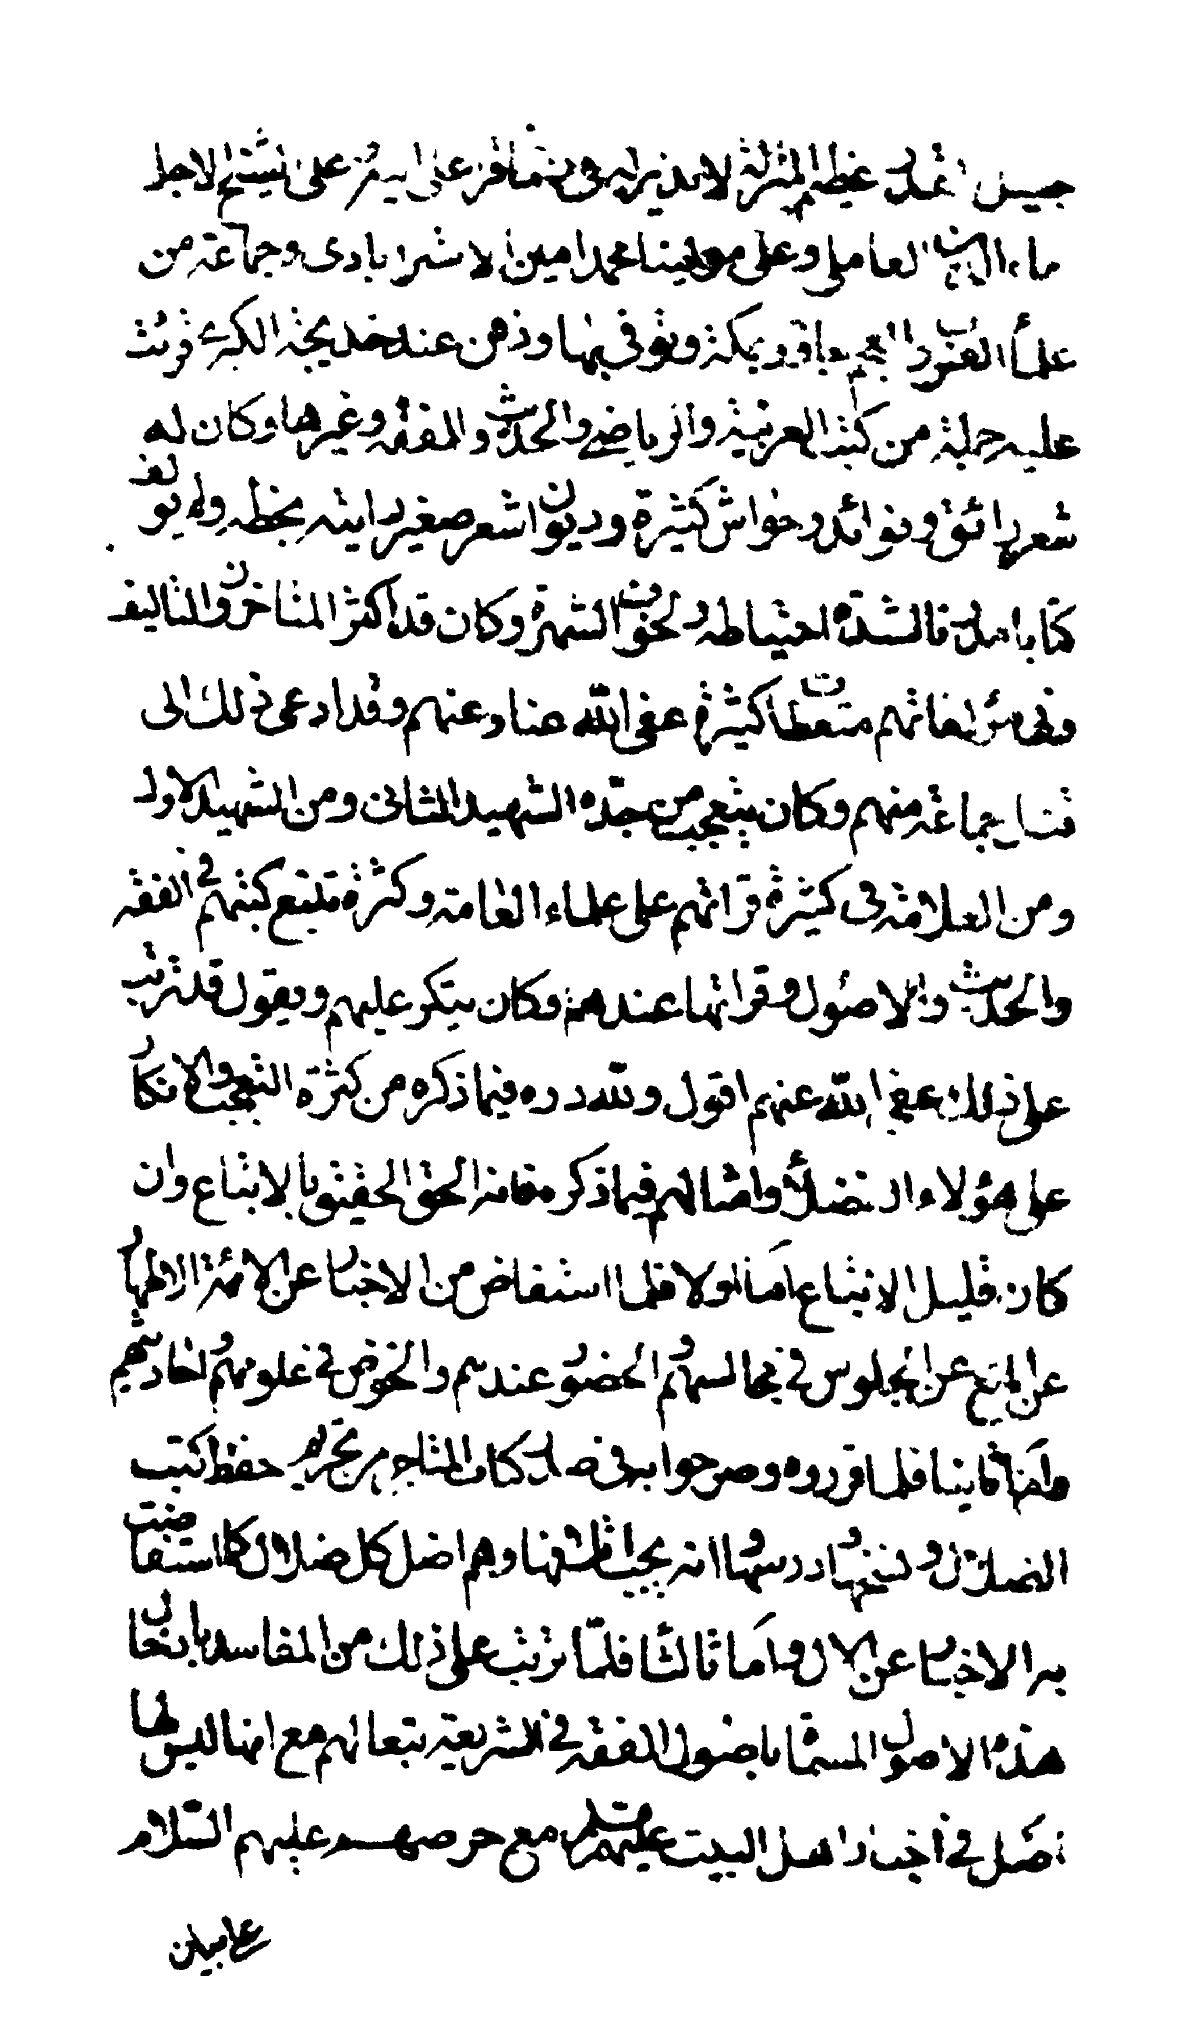 جليل القدر عظيم المنزلة لا نظير له في زمانه قرء على ابيه وعلى الشيخ الاجل
بهاء الدين العاملي وعلى مولينا محمد امين الاسترابادى وجماعة من
علماء العرب والعجم جاور بمكة وتوفى بها ودفن عند خديجة الكبرى قرئت
عليه جملة من كتب العربية والرياضي والحديث والفقه وغيرها وكان له
شعر رائق وفوائد وحواش كثيرة وديوان شعر صغير رايته بخطه ولم يؤلف
كتابا مدونا لشدة احتياطه ولخوف الشهرة وكان يقول قد اكثر المتاخرون التاليف
وفى مؤلفاتهم سقطات كثيرة عفى الله عنا وعنهم وقد ادى ذلك الى
قتل جماعة منهم وكان يتعجب من جده الشهيد الثانى ومن الشهيد الاول
ومن العلامة فى كثرة قرائتهم على علماء العامة وكثرة تتبع كتبهم في الفقه
والحديث والاصول وقرائتها عندهم وكان ينكر عليهم ويقول قد ترتب
على ذلك عفى الله عنهم اقول ولله دره فيما ذكره من كثرة التعجب والانكار
على هؤلاء الفضلاء وامثالهم فيما ذكره فانه الحق الحقيق بالاتباع وان
كان قليل الاتباع اما اولا فلما استفاض من الاخبار عن الائمة الاطهار
عن المنع عن الجلوس في مجالسهم والحضور عندهم والخوض في علومهم لحاديثهم
واما ثانيا فلما قرروه وصرحوا به فى كتاب المتاجر من تحريم حفظ كتب
الضلال ونسخها ودرسها وانه يجب اتلافها وهم اضل كل ضلال كما استفاضت
به الاخبار عن الال واما ثالثا فلما ترتب على ذلك من المفاسد بادخال
هذه الاصول المسماة باصول الفقه في الشريعة تبعا لهم مع انها ليس لها
اصل في اخبار اهل البيت عليهم السلام مع حرصهم عليهم السلام